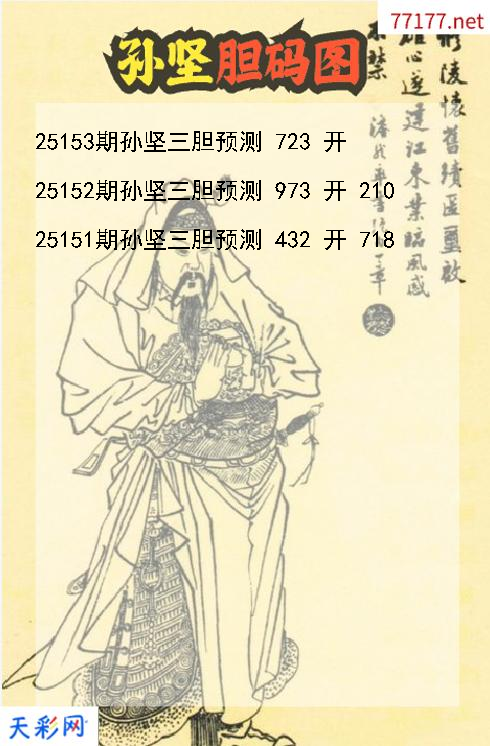 77177.net
孙坚胆码图
25153期孙坚三胆预测 723 开
25152期孙坚三胆预测 973 开 210
25151期孙坚三胆预测 432 开 718
陵怀旧绩匡玺启
雄心遂建江东业临风感
不禁
天彩网